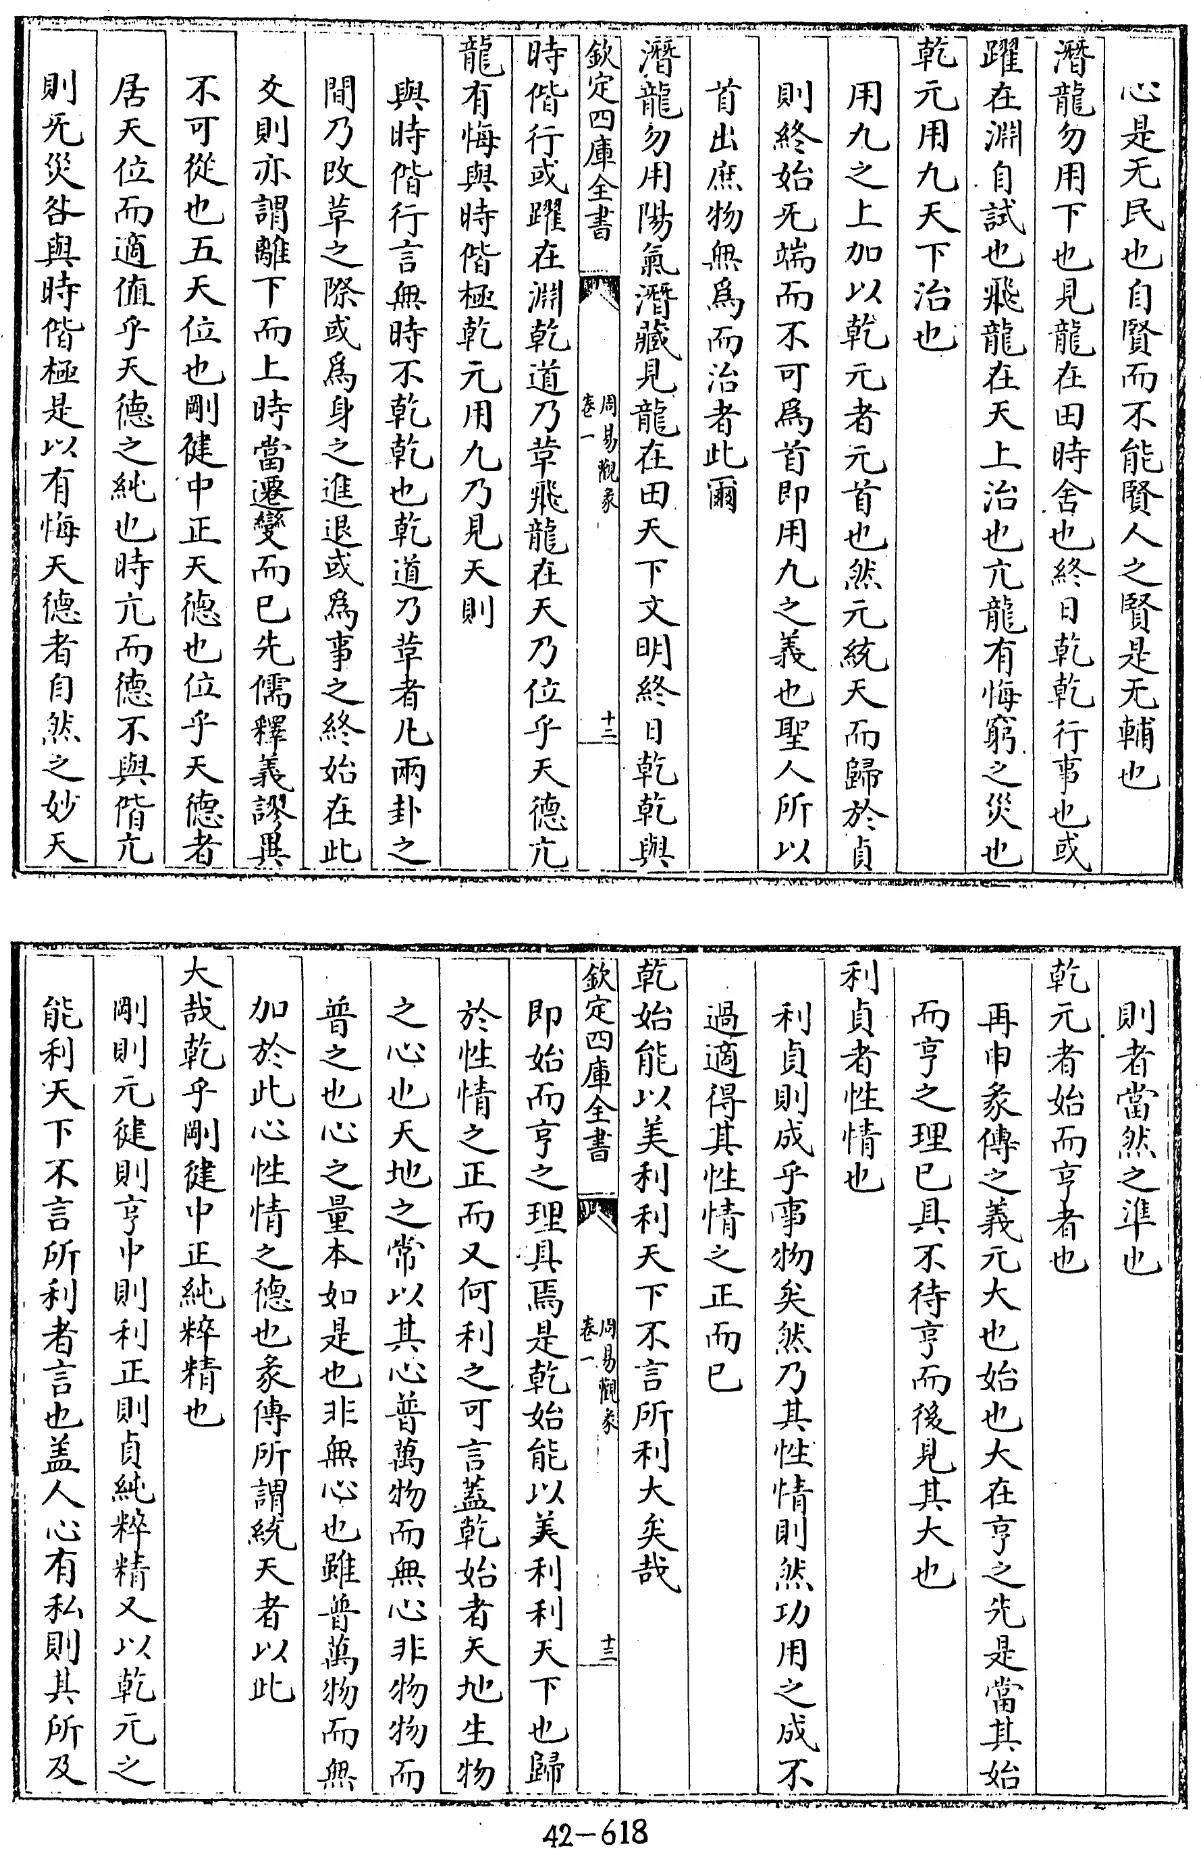 心是无民也自賢而不能賢人之賢是无輔也
潛龍勿用下也見龍在田時舍也終日乾乾行事也或
躍在淵自試也飛龍在天上治也亢龍有悔窮之災也
乾元用九天下治也
用九之上加以乾元者元首也然元統天而歸於貞
則終始无端而不可爲首即用九之義也聖人所以
首出庶物無爲而治者此爾
潛龍勿用陽氣潛藏見龍在田天下文明終日乾乾與
欽定四庫全書
周易觀彖
卷一
十二
時偕行或躍在淵乾道乃革飛龍在天乃位乎天德亢
龍有悔與時偕極乾元用九乃見天則
與時偕行言無時不乾乾也乾道乃革者凡兩卦之
間乃改革之際或爲身之進退或爲事之終始在此
爻則亦謂離下而上時當遷變而已先儒釋義謬異
不可從也五天位也剛健中正天德也位乎天德者
居天位而適值乎天德之純也時亢而德不與偕亢
則无災咎與時偕極是以有悔天德者自然之妙天
則者當然之準也
乾元者始而亨者也
再申彖傳之義元大也始也大在亨之先是當其始
而亨之理已具不待亨而後見其大也
利貞者性情也
利貞則成乎事物矣然乃其性情則然功用之成不
過適得其性情之正而已
乾始能以美利利天下不言所利大矣哉
欽定四庫全書
周易觀彖
卷一
十三
即始而亨之理具焉是乾始能以美利利天下也歸
於性情之正而又何利之可言蓋乾始者天地生物
之心也天地之常以其心普萬物而無心非物物而
普之也心之量本如是也非無心也雖普萬物而無
加於此心性情之德也彖傳所謂統天者以此
大哉乾乎剛健中正純粹精也
剛則元健則亨中則利正則貞純粹精又以乾元之
能利天下不言所利者言也盖人心有私則其所及
42-618